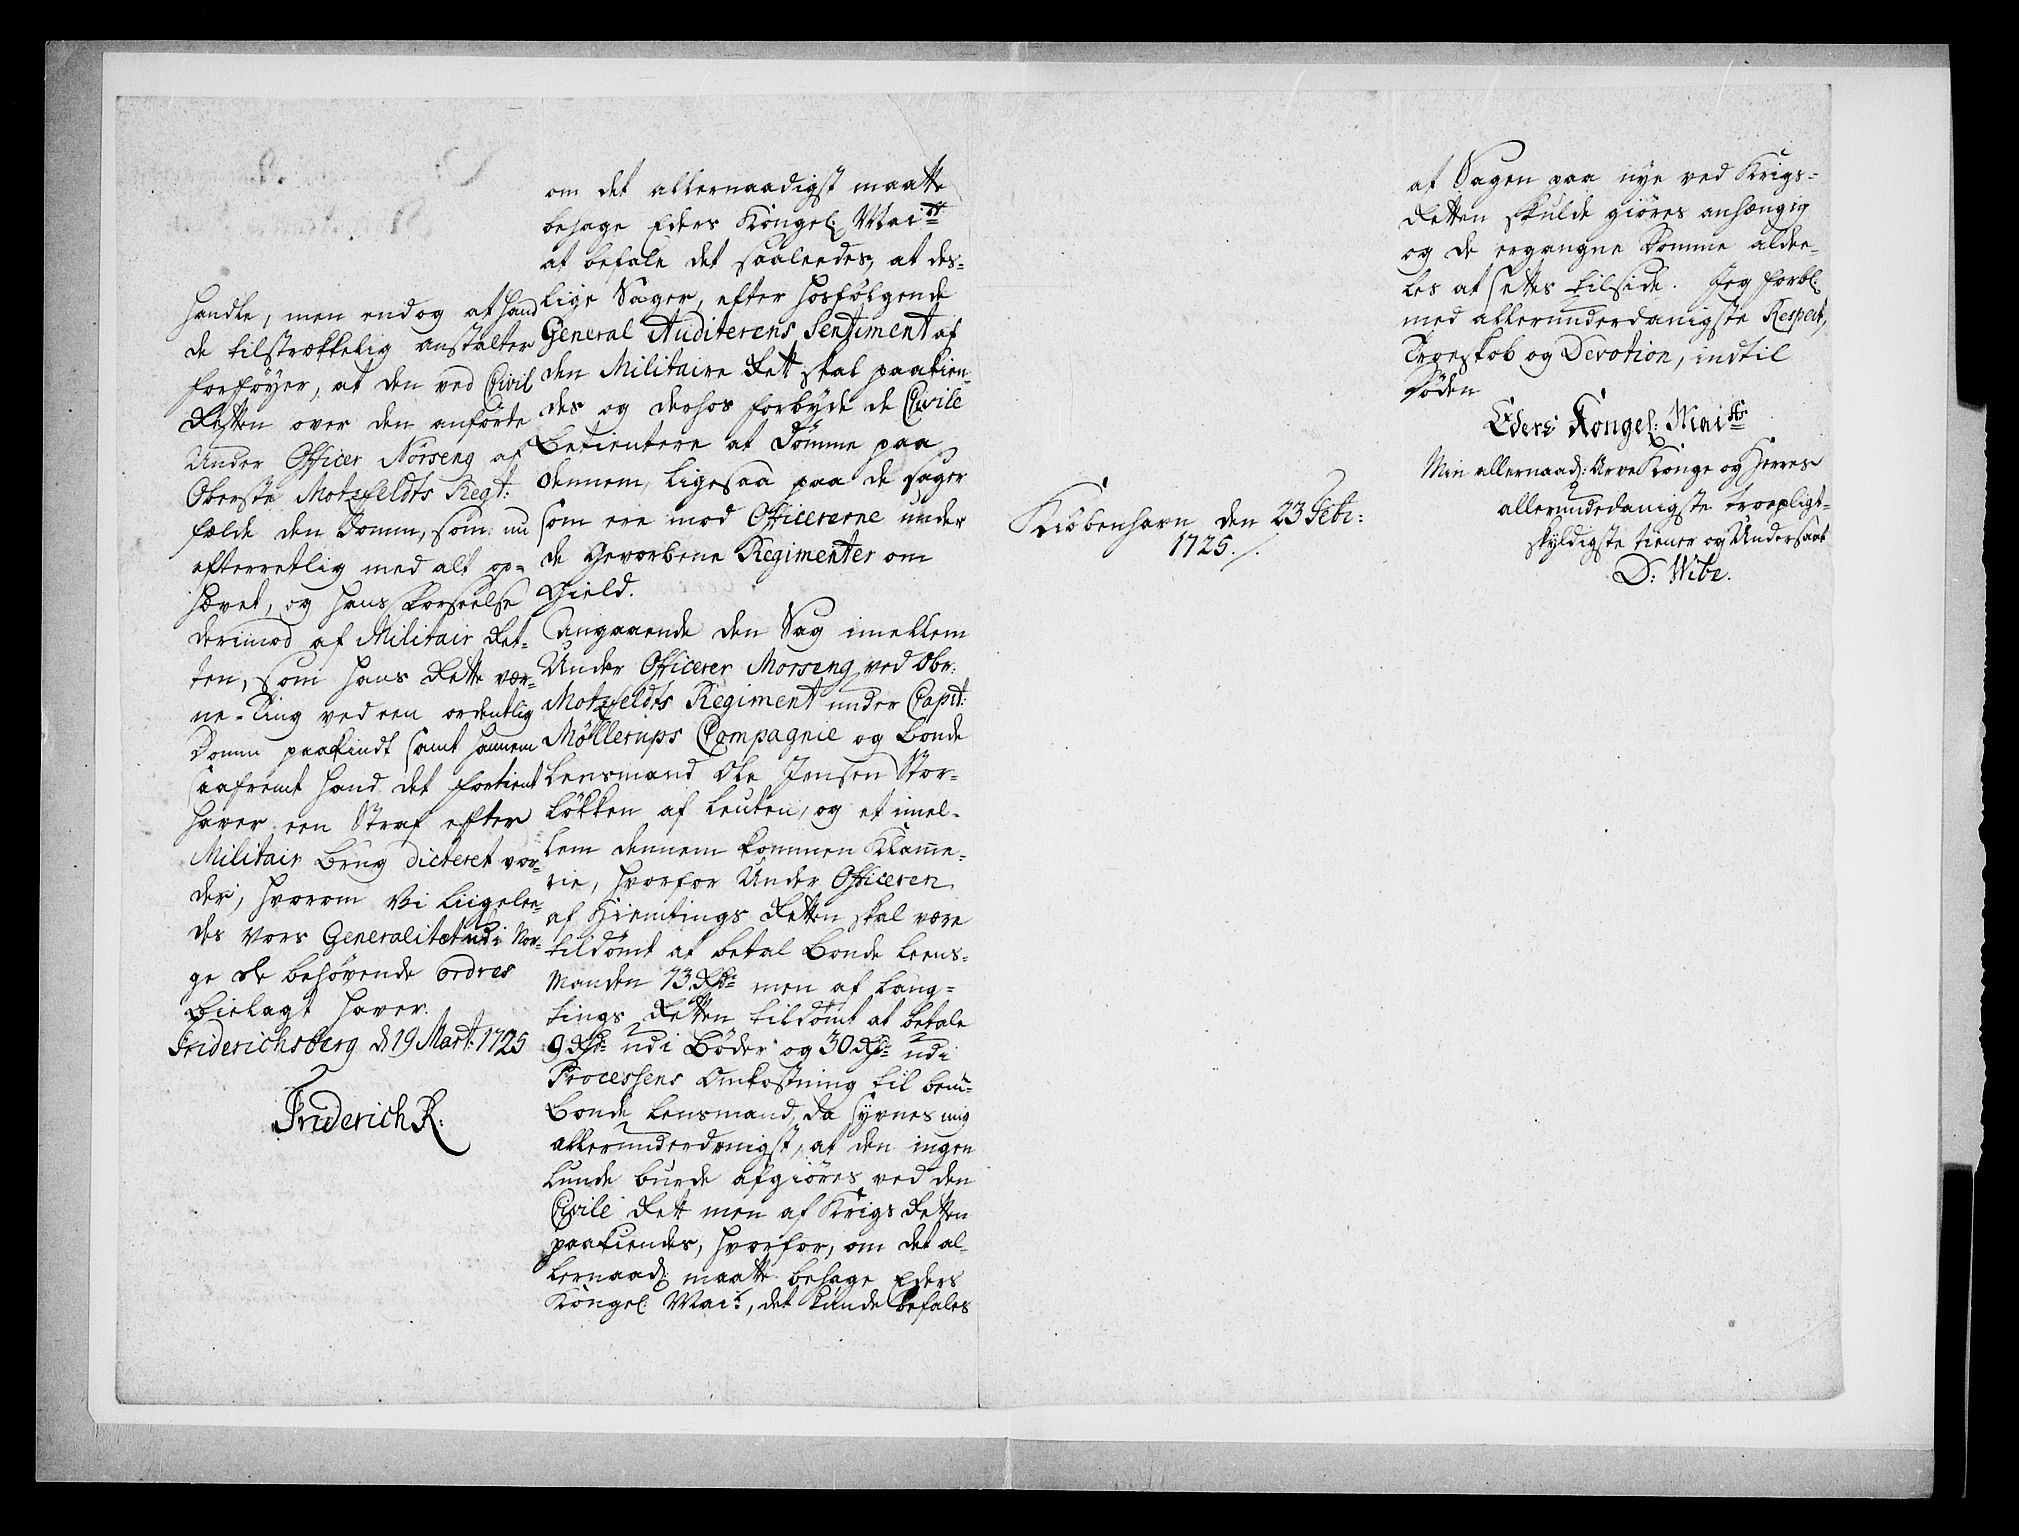 handle, men endog at hand
de tilstrækkelig anstalter
forføyer, at den ved Civil
Retten over den anførte
Under Officer Norseng af
Oberste Motzfeldts Regt:
fælde den Domm, som nu
efterretlig med alt op-
hævet, og hans forseelse
derimod af Militair Ret-
ten, som hans Rette vær-
ne-Ting ved een ordentlig
Domm paakindt samt hannem
saafremt hand det fortient
haver een Straf efter
Militair brug dicteret vor-
der, hvorom Vi liigelee-
des Vors Generalitet udi Nor-
ge de behøvende ordres
bielagt haver.
Friderichsberg d 19 Mart: 1725
Friderich R:
om det allernaadigst maatte
behage Eders Kongel: Maitt
at befale det saaleedes, at des-
lige Sager, efter hosfølgende
General Auditerens Sentiment af
den Militaire Rett skal paakien-
des og derhos forbyde de Civile
Betientere at Domme paa
dennem, ligesaa paa de sager
som ere mod Officererne under
de Gevorbene Regimenter om
Gield.
Angaaende den Sag imellem
Under Officerer Morseng ved Obr:
Motzfeldts Regiment under Capit:
Møllerups Compagnie og Bonde
Lensmand Ole Jensen Stor-
løkken af Leuten, og et imel-
lem dennem kommen Klame-
rie, hvorfor Under Officeren
af Hiemtings Retten skal være
tildømt at betal Bonde Leens-
manden 13 Rdr men af Laug-
tings Retten tildømt at betale
9 Rdr udi Bøder og 30 Rdr udi
Processens Omkostning til bem-
Bonde Lensmand, da synes mig
allerunderdanigst, at den ingen
lunde burde afgiøres ved den
Civile Rett men af Krigs Retten
paakiendes, hvorfor, om det al-
lernaad: maatte behage Eders
Kongel: Mait, det kunde befales
Kiøbenhavn den 23 Febr:
1725./.
at Sagen paa nye ved Krigs-
Retten skulde giøres anhængig
og de ergangne Domme aldee-
les at settes tilside. Jeg forbl:
med allerunderdanigste Respect,
Troeskab og Devotion, indtil
Døden
Eders Kongel: Maitts
Min allernaad: Arve Konge og Herres
allerunderdanigste troepligt-
skyldigste tiener og Undersaat
D: Wibe.